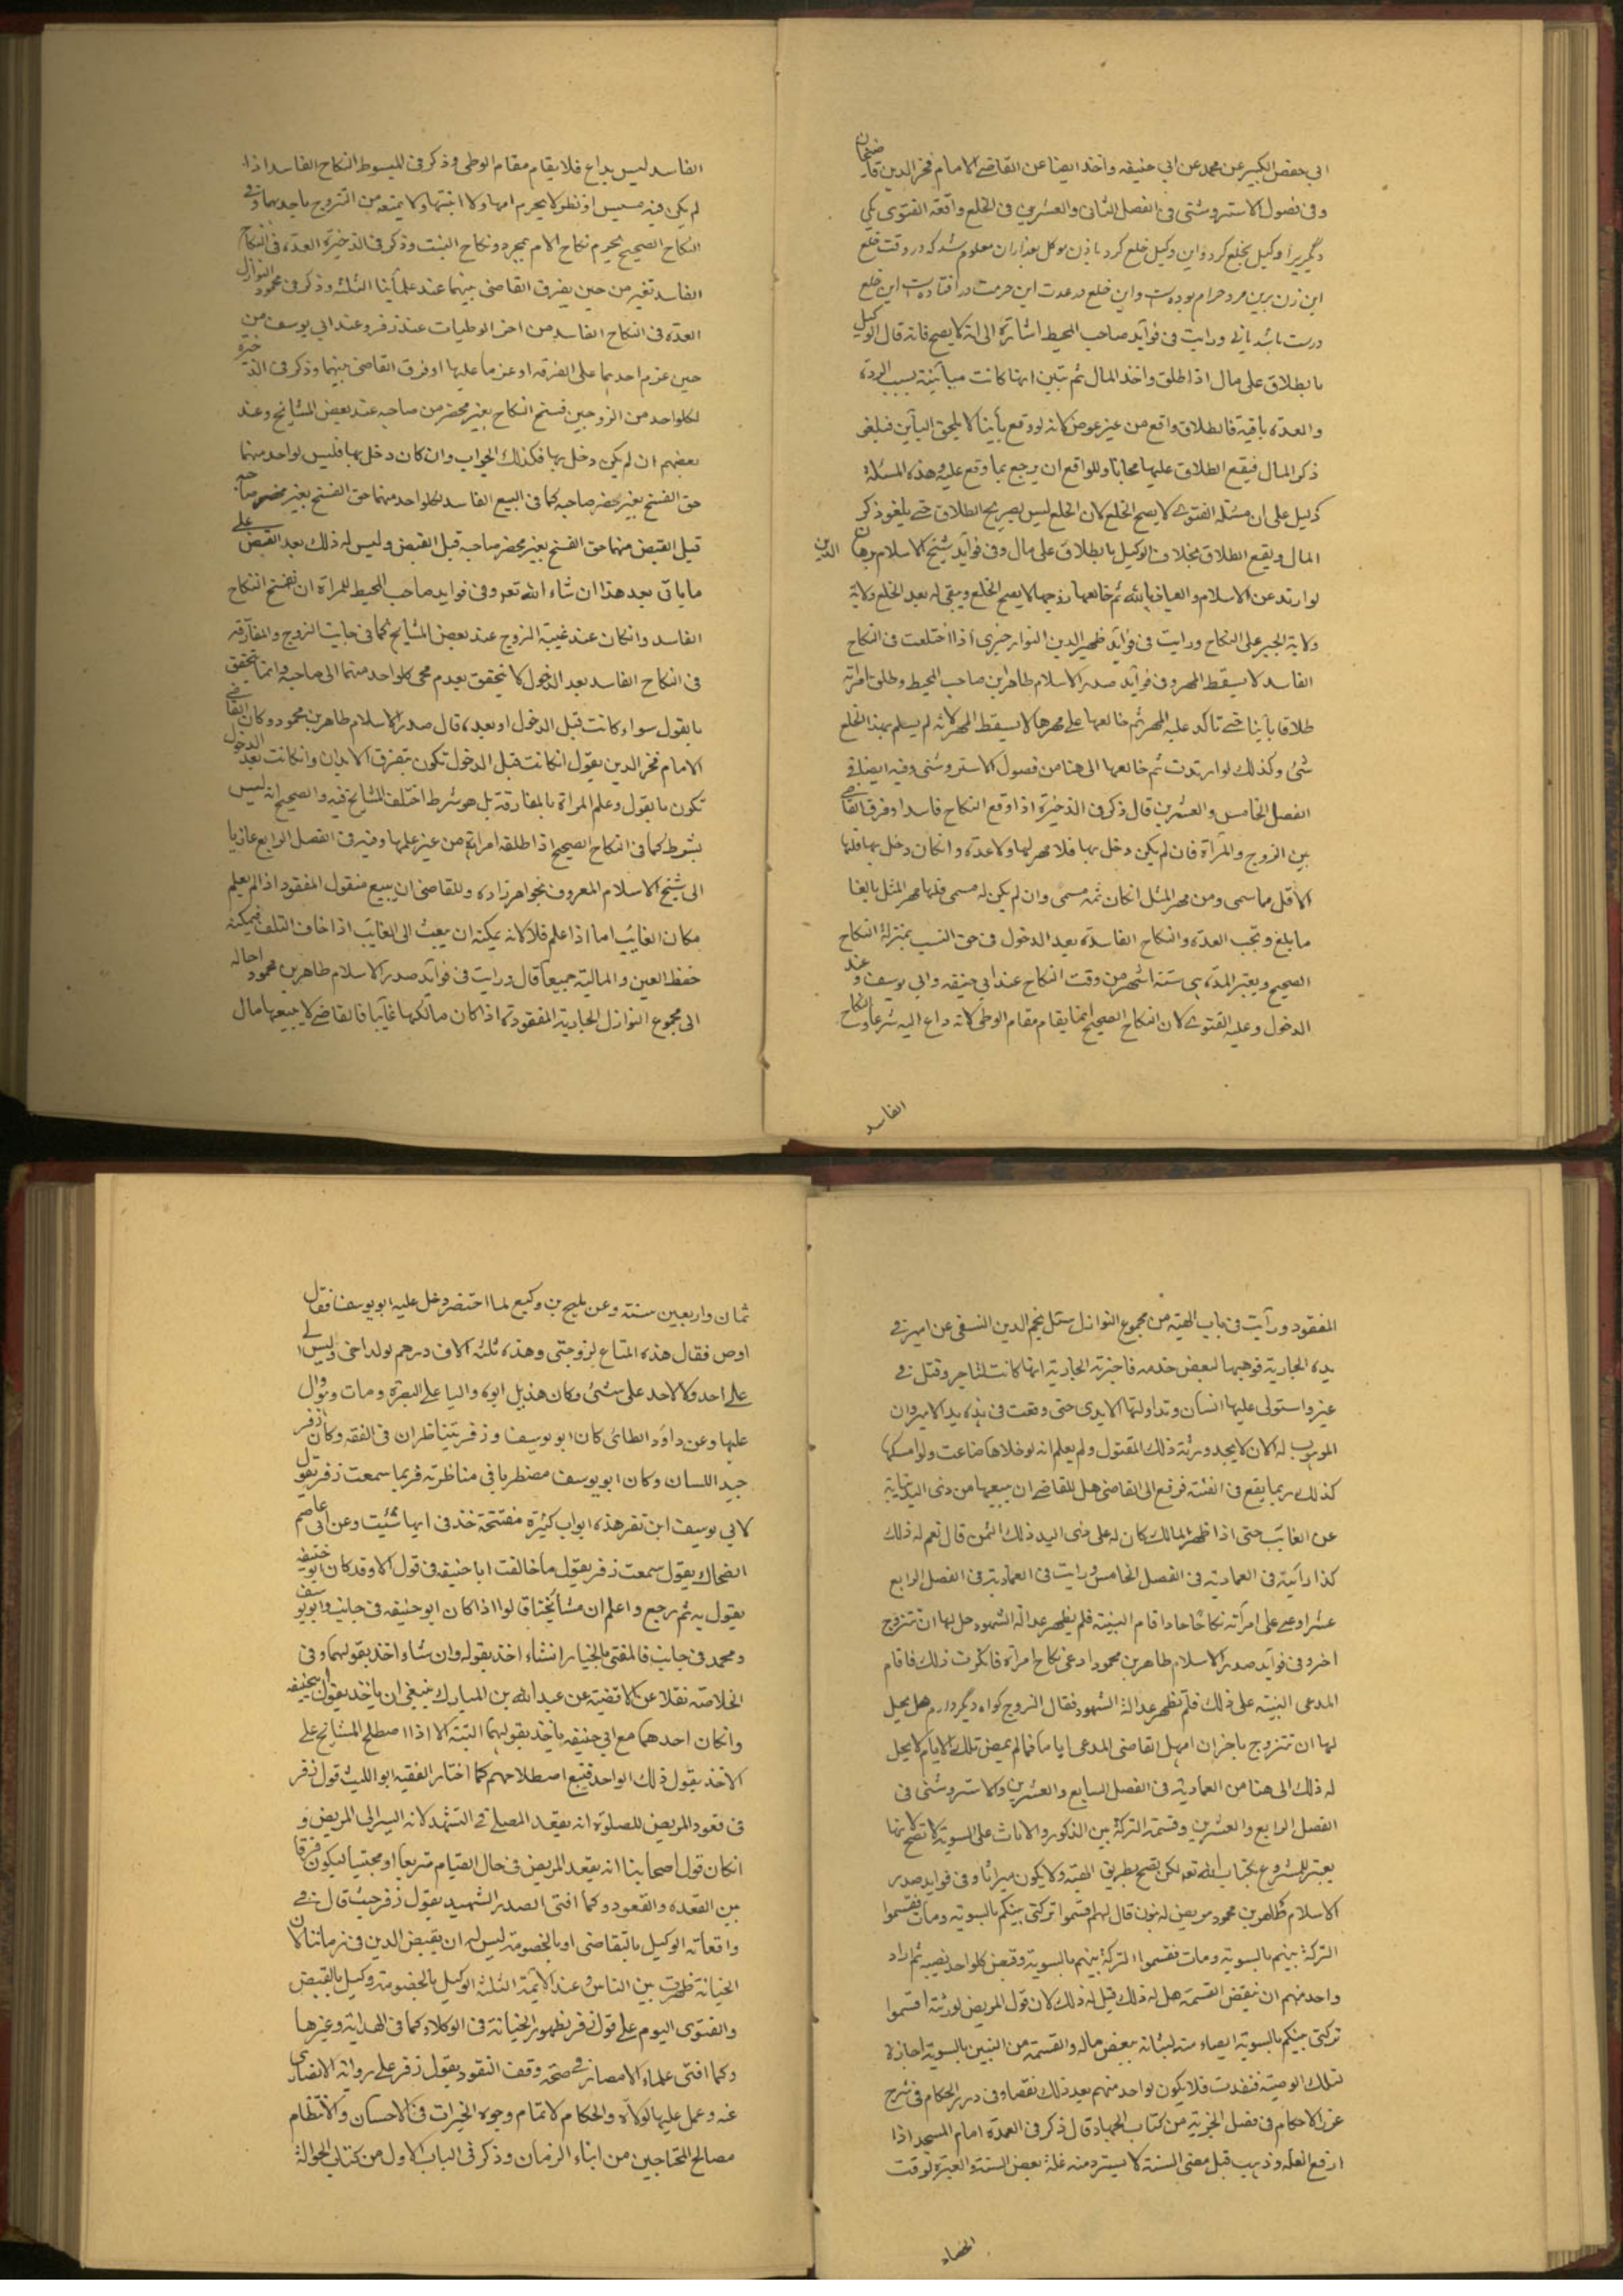 ابى حفص الكبير عن محمد عن ابي حنيفه واخذ ايضا عن القاضى الامام فخر الدين قاضيخان
وفى فصول الاستروشنى فى الفصل الثانى والعشرين فى الخلع واقعة الفتوى يكى
ديگريرا وكيل بخلع كرد واين وكيل خلع كرد باذن موكل بعد ازان معلوم شد كه در وقت خلع
اين زن برين مرد حرام بوده است واين خلع در عدت اين حرمت در افتاده است اين خلع
درست باشد يانى ورايت فى فوائد صاحب المحيط اشارة الى انه لا يصح فانه قال الوكيل
بالطلاق على مال اذا طلق واخذ المال ثم تبين انها كانت مباينة بسبب الردة
والعدة باقية فالطلاق واقع من غير عوض لانه لو وقع بأينا لا يلحق البأين فيلغى
ذكر المال فيقع الطلاق عليها مجانا وللواقع ان يرجع بما وقع عليه وهذه المسئلة
دليل على ان مسئلة الفتوى لا يصح الخلع لان الخلع ليس بصريح الطلاق حتى يلغو ذكر
المال ويقع الطلاق بخلاف الوكيل بالطلاق على مال وفى فوائد شيخ الاسلام برهان الدين
لو ارتد عن الاسلام والعياذ بالله ثم خالعها زوجها لا يصح الخلع ويبقى له بعد الخلع ولاية
ولاية الجبر على النكاح ورايت فى فوائد ظهير الدين اذا اختلعت فى النكاح
الفاسد لا يسقط المهر وفى فوائد صدر الاسلام طاهر بن صاحب المحيط وطلق امراته
طلاقا بأينا حتى تاكد عليه المهر ثم خالعها على مهرها لا يسقط المهر لانه لم يسلم بهذا الخلع
شئ وكذلك لو ارتدت ثم خالعها الى هنا من فصول الاستروشنى وفيه ايضا فى
الفصل الخامس والعشرين قال ذكر فى الذخيرة اذا وقع النكاح فاسدا وفرق القاضى
بين الزوج والمرأة فان لم يكن دخل بها فلا مهر لها ولا عدة وانكان دخل بها فلها
الاقل مما سمى ومن مهر المثل انكان ثمه مسمى وان لم يكن له مسمى فلها مهر المثل بالغا
ما بلغ وتجب العدة والنكاح الفاسد بعد الدخول فى حق النسب بمنزلة النكاح
الصحيح ويعتبر المدة ستة اشهر من وقت النكاح عند ابى حنيفه وابي يوسف وعند
الدخول وعليه الفتوى لان النكاح الصحيح انما يقام مقام الوطى لانه داع اليه شرعا والنكاح
الفاسد
الفاسد ليس بداع فلا يقام مقام الوطى وذكر فى المبسوط النكاح الفاسد اذا
لم يكن فيه مسيس او نظر لا يحرم امها ولا ابنتها ولا يمنعه من التزوج باحديهما وفى
النكاح الصحيح يحرم نكاح الام بمجرد نكاح البنت وذكر فى الذخيرة العدة فى النكاح
الفاسد تعتبر من حين يفرق القاضى بينهما عند علمائنا الثلثة وذكر فى مجموع النوازل
العدة فى النكاح الفاسد من اخر الوطيات عند زفر وعند ابى يوسف من
حين عزم احديهما على الفرقه او عزما عليها او فرق القاضى بينهما وذكر فى الذخيرة
لكلواحد من الزوجين فسخ النكاح بغير محضر من صاحبه عند بعض المشايخ وعند
بعضهم ان لم يكن دخل بها فكذلك الجواب وان كان دخل بها فليس لواحد منهما
حق الفسخ بغير محضر صاحبه كما فى البيع الفاسد لكلواحد منهما حق الفسخ بغير محضر صاحبه
قبل القبض منهما حق الفسخ بغير محضر صاحبه قبل القبض وليس له ذلك بعد القبض على
ما ياتى بعد هذا ان شاء الله تعه وفى فوايد صاحب المحيط للمراة ان تفسخ النكاح
الفاسد وانكان عند غيبة الزوج عند بعض المشايخ كما فى جانب الزوج والمفارقة
فى النكاح الفاسد بعد الدخول لا يتحقق بعدم مجئ كلواحد منهما الى صاحبه وانما يتحقق
بالقول سواء كانت قبل الدخول او بعده قال صدر الاسلام طاهر بن محمود وكان القاضى
الامام فخر الدين يقول انكانت قبل الدخول تكون بتفرق الابدان وانكانت بعد الدخول
تكون بالقول وعلم المراة بالمفارقة بل هو شرط اختلف المشايخ فيه والصحيح انه ليس
بشرط كما فى النكاح الصحيح اذا طلقه امراته من غير علمها وفيه فى الفصل الرابع عازيا
الى شيخ الاسلام المعروف بخواهر زاده وللقاضى ان يبيع منقول المفقود اذا لم يعلم
مكان الغائب اما اذا علم فلا لانه يمكنه ان يبعث الى الغائب اذا خاف التلف فيمكنه
حفظ العين والمالية جميعا قال ورايت فى فوائد صدر الاسلام طاهر بن محمود احاله
الى مجموع النوازل الجارية المفقودة اذا كان مالكها غائبا فالقاضى لا يبيعها مال
المفقود ورأيت فى باب الهبة من مجموع النوازل سئل نجم الدين النسفى عن امير فى
يده الجارية فوهبها لبعض خدمه فاخبرته الجارية انها كانت لتاجر وقتل فى
عير واستولى عليها انسان وتداولتها الايدى حتى وقعت فى يد الامير وان
الموهوب له الان لا يجد ورثة ذلك المقتول ولم يعلم انه لو خلاها ضاعت ولو امسكها
كذلك ربما يقع فى الفتنة فرفع الى القاضى هل للقاضى ان يبيعها من ذى اليد نيابة
عن الغائب حتى اذا ظهر المالك كان له على ذى اليد ذلك الثمن قال نعم له ذلك
كذا رأيته فى العماديه فى الفصل الخامس ورايت فى العماديه فى الفصل الرابع
عشر ادعى على امرأته نكاحا واقام البينة فلم يظهر عدالة الشهود حل لها ان تتزوج
اخر وفى فوائد صدر الاسلام طاهر بن محمود ادعى نكاح امراة فانكرت ذلك فاقام
المدعى البينه على ذلك فلم تظهر عدالة الشهود فقال الزوج كواه ديگر دارم هل يحل
لها ان تتزوج باخر ان امهل القاضى المدعى اياما فمالم يمض تلك الايام لا يحل
له ذلك الى هنا من العماديه فى الفصل السابع والعشرين والاستروشنى فى
الفصل الرابع والعشرين وقسمة التركة بين الذكور والاناث على السوية لا تصح لانها
بكتاب الله تعه لكن تصح بطريق الهبة ولا يكون ميراثا وفى فوايد صدر
الاسلام طاهر بن محمود مريض له بنون قال لهم اقتسموا تركتى بينكم بالسويه ومات فقسموا
التركة بينهم بالسوية ومات فقسموا التركة بينهم بالسوية وقبض كلواحد نصيبه ثم اراد
واحد منهم ان ينقض القسمة هل له ذلك قيل له ذلك لان قول المريض لورثته اقتسموا
تركتى بينكم بالسوية ايصاء منه لبناته ببعض ماله والقسمة من البنين بالسوية اجازة
لتلك الوصية فنفذت فلا يكون لواحد منهم بعد ذلك نقضا وفى درر الحكام فى شرح
غرر الاحكام فى فصل الجزية من كتاب الجهاد قال ذكر فى العمدة امام المسجد اذا
ارفع الغلة وذهب قبل مضى السنة لا يسترد منه غلة بعض السنة والعبرة لوقت
الحصاد
ثمان واربعين سنة وعن مليح بن وكيع لما احتضر دخل عليه ابو يوسف فقال
اوص فقال هذه المتاع لزوجتى وهذه ثلثة الاف درهم لولد اخى وليس لى
على احد ولا لاحد على شئ وكان هذيل ابوه واليا على البصرة ومات ووال
عليها وعن داود الطائى كان ابو يوسف وزفر يتناظران فى الفقه وكان زفر
جيد اللسان وكان ابو يوسف مضطربا فى مناظرته فربما سمعت زفر يقول
لابي يوسف اين تفر هذه ابواب كثيرة مفتتحة خذ فى ايها شئت وعن ابى عاصم
الضحاك يقول سمعت زفر يقول ما خالفت ابا حنيفه فى قول الا وقد كان ابو حنيفه
يقول به ثم رجع واعلم ان مشايخنا قالوا اذا كان ابو حنيفه فى جانب وابو يوسف
ومحمد فى جانب فالمفتى بالخيار انشاء اخذ بقوله وان شاء اخذ بقولهما وفى
الخلاصة نقلا عن الاقضية عن عبد الله بن المبارك ينبغى ان ياخذ بقول ابى حنيفه
وانكان احدهما مع ابى حنيفه ياخذ بقولهما البتة الا اذا اصطلح المشايخ على
الاخذ بقول ذلك الواحد فنتبع اصطلاحهم كما اختار الفقيه ابو الليث قول زفر
فى قعود المريض للصلوة انه يقعد المصلى فى التشهد لانه ايسر الى المريض و
انكان قول اصحابنا انه يقعد المريض فى حال القيام متربعا او محتبيا ليكون فرقا
بين القعدة والقعود وكما افتى الصدر الشهيد بقول زفر حيث قال فى
واقعاته الوكيل بالتقاضى او بالخصومة ليس له ان يقبض الدين فى زماننا لان
الخيانة ظهرت بين الناس وعند الائمة الثلثة الوكيل بالخصومة وكيل بالقبض
والفتوى اليوم على قول زفر لظهور الخيانة فى الوكلاء كما فى الهداية وغيرها
وكما افتى علماء الامصار فى صحة وقف النقود بقول زفر على رواية الانصارى
عنه وعمل عليها الولاة والحكام لاتمام وجوه الخيرات فى الاحسان والانتظام
مصالح المحتاجين من ابناء الزمان وذكر فى الباب الاول من كتاب الحوالة